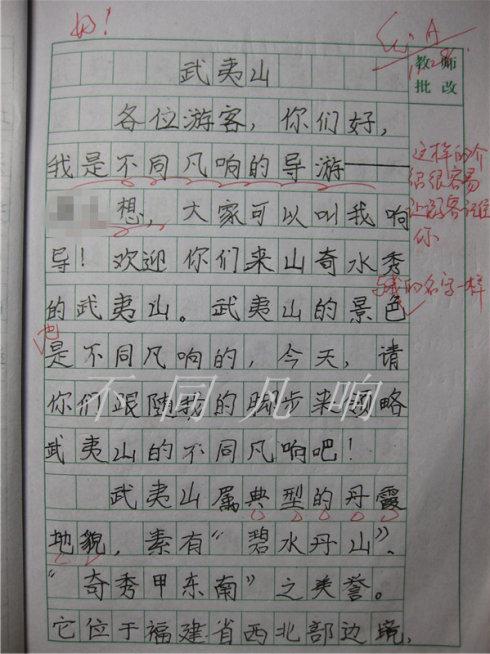 好!
A
教师
批改
武夷山
各位游客，你们好，
我是不同凡响的导游——
想，大家可以叫我响
导！欢迎你们来山奇水秀
的武夷山。武夷山的景色
是不同凡响的，今天，请
你们跟随我的脚步来领略
武夷山的不同凡响吧！
武夷山属典型的丹霞
地貌，素有“碧水丹山”、
“奇秀甲东南”之美誉。
它位于福建省西北部边境，
这样的介
绍很容易
让游客记住
你
与我的名字一样
也
不同凡响